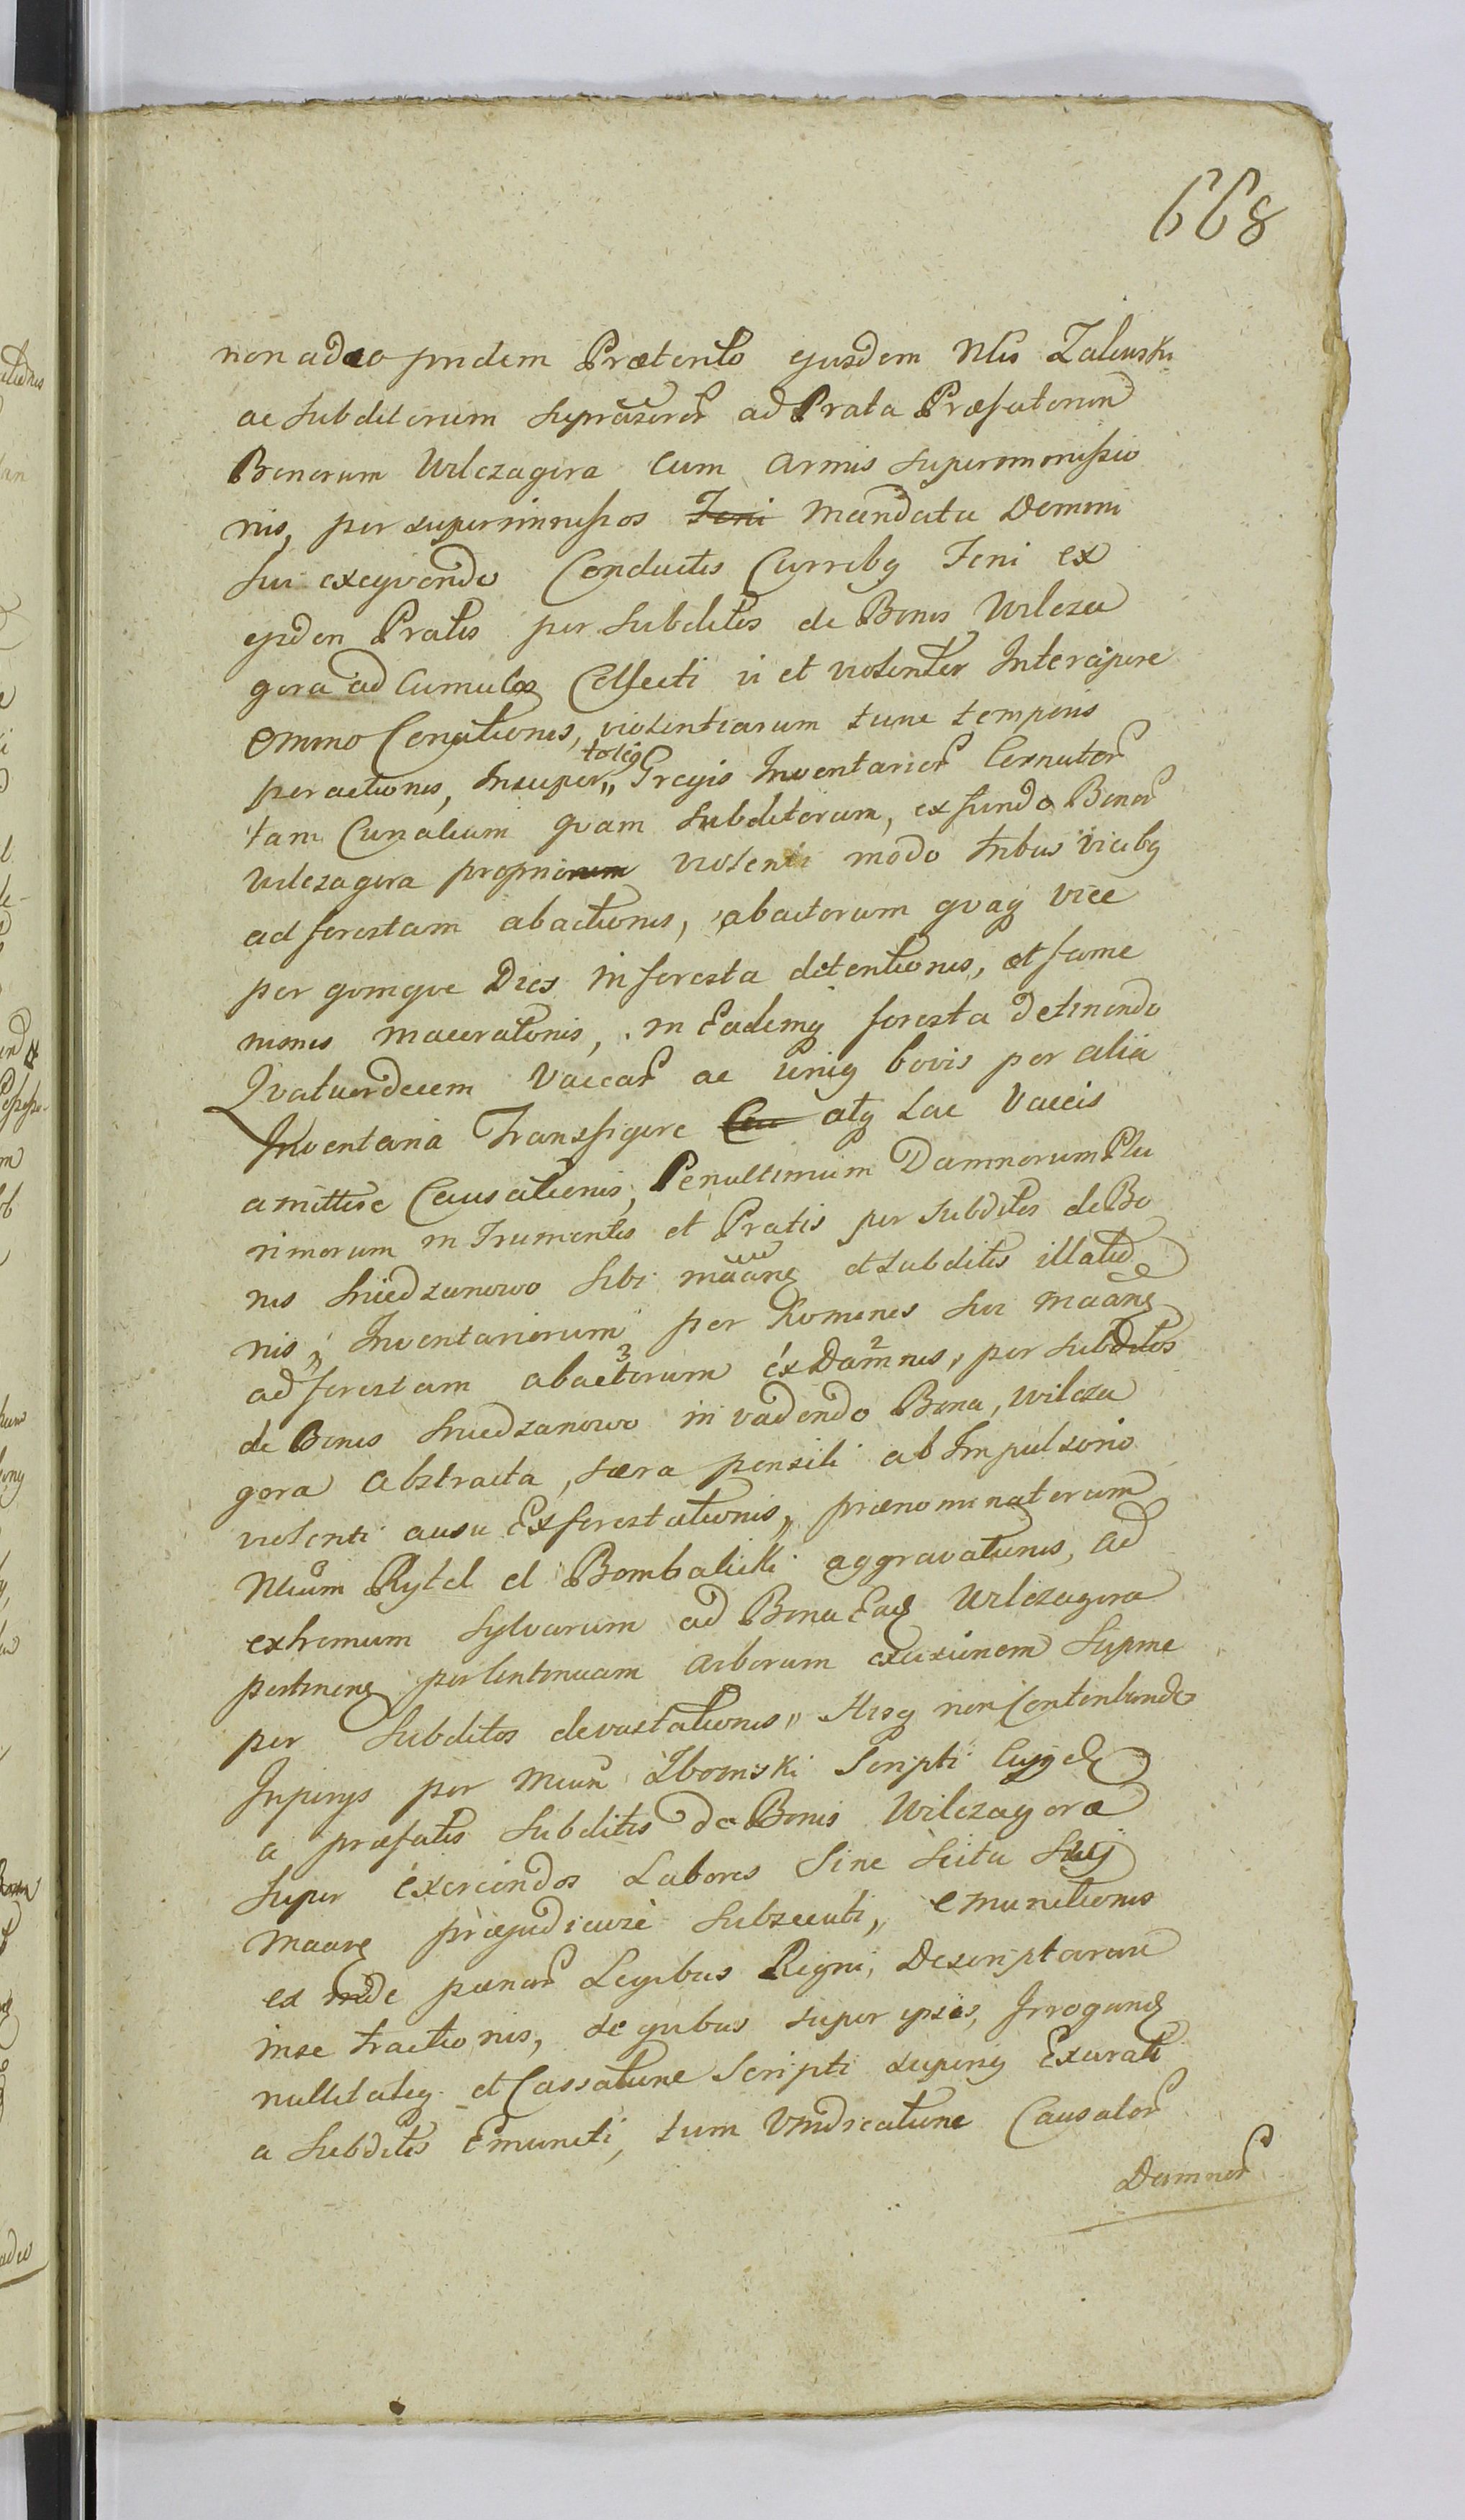 668
non adeo pridem Præterito ejusdem Nlis Zalewski
ac Subditorum Suprascror ad Prata Præfatorum
Bonorum Wilczagora Cum Armis Superimmissio
nis, per superimmissos Feni Mandata Domini
Sui exeqvendo Conductis Curribq Feni ex
ejsdem Pratis per Subditos de Bonis Wilcza
gora ad Cumulos Collecti vi et violenter Intercipere
Omnino Conationis, violentiarum tunc temporis
peractionis, Insuper,, totiq Gregis Inventarior Cornutor
tam Curialium qvam Subditorum, ex fundo Bonor
Wilczagora propriorum violenti modo tribus vicibq
ad forestam abactionis, abactorum qvaq vice
per qvinqve Dies in foresta detentionis, et fame
nimis macerationis, in Eademq foresta Detinendo
Qvatuordecem Vaccar ac Uniq bovis per alia
Inventaria Transfigere Cau atq Lac Vaccis
amittere Causationis, Penultimum Damnorum Plu
rimorum in Frumentis et Pratis per Subditos de Bo
nis Sniedzanowo Sibi maane et Subditis illatio
nis, Inventariorum per Homines Sui maane
ad forestam abactorum 3 ex Damnis 2, per Subditos
de Bonis Sniedzanowo invadendo Bona, Wilcza
gora Abstracta, sera pensili ab Impulsorio
violenti ausu Exforestationis,, prænominatorum
Mcum Rytel et Bombalicki aggravationis, ad
extremum Sylvarum ad Bona Ead Wilczagora
pertinens per Continuam Arborum excisionem Supme
per Subditos devastationis,, Hisq non Contentando
Superqs per Mcun Zboinski Scripti Cujqd
a præfatis Subditis de Bonis Wilczagora
super exercendos Labores Sine Scitu Suij
Maane præjudiciose Subsecuti,, emunctionis
ex inde pœnar Legibus Regni, Descriptarum
inse tractionis, de qvibus super ipsos, Irrogand
nullitateq et Cassatione Scripti superiq Exarati
a Subditis Emuncti, tum Vindicatione Causator
Damnor